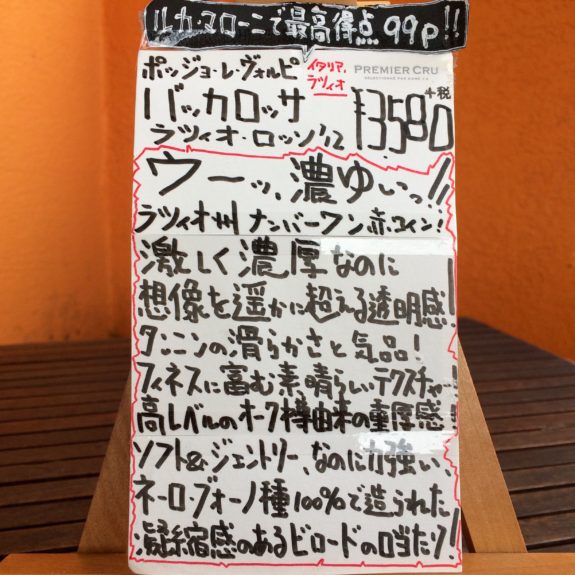 ルカ・マローニで最高得点99p!!
ポッジョ・レ・ヴォルピ
イタリア、
ラツィオ
PREMIER CRU
バッカロッサ
ラツィオ・ロッソ'12
¥3580
+税
ウーッ、濃ゆいっ!!
ラツィオ州 ナンバーワン赤ワイン!
激しく濃厚なのに
想像を遥かに超える透明感!
タンニンの滑らかさと気品!
フィネスに富む素晴らしいテクスチャー!
高レベルのオーク樽由来の重厚感!
ソフト&ジェントリー、なのに力強い、
ネーロ・ブォーノ種100%で造られた
凝縮感のあるビロードの口当たり!